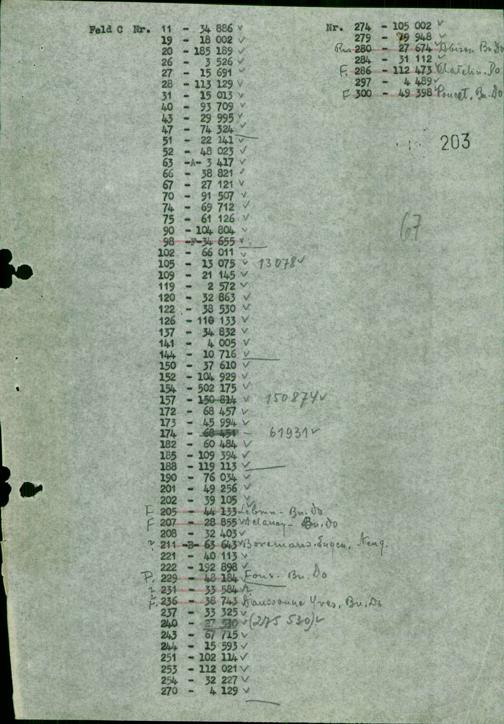 Feld C Nr. 11 - 34 886 ✓
19 - 18 002 ✓
20 - 185 189 ✓
26 - 3 526 ✓
27 - 15 691 ✓
28 - 113 129 ✓
31 - 15 013 ✓
40 - 93 709 ✓
43 - 29 995 ✓
47 - 74 324 ✓
51 - 22 141 ✓
52 - 48 023 ✓
63 -A- 3 417 ✓
66 - 38 821 ✓
67 - 27 121 ✓
70 - 91 507 ✓
74 - 69 712 ✓
75 - 61 126 ✓
90 - 104 804 ✓
98 -F- 34 655 ✓
102 - 66 011 ✓
105 - 13 075 ✓ 13078 ✓
109 - 21 145 ✓
119 - 2 572 ✓
120 - 32 863 ✓
122 - 38 530 ✓
126 - 110 133 ✓
137 - 34 832 ✓
141 - 4 005 ✓
144 - 10 716 ✓
150 - 37 610 ✓
152 - 104 929 ✓
154 - 502 175 ✓
157 - 150 814 150874 ✓
172 - 68 457 ✓
173 - 45 994 ✓
174 - 61931 ✓
182 - 60 484 ✓
185 - 109 394 ✓
188 - 119 113 ✓
190 - 76 034 ✓
201 - 49 256 ✓
202 - 39 105 ✓
F 205 - 44 133 Lebrun - Bu.Do
F 207 - 28 855 ✓ Delaney - Bu.Do
208 - 32 403 ✓
? 211 -B- 63 643 ✓ Eugen, Neng.
221 - 40 113 ✓
222 - 192 898 ✓
P. 229 - 48 184 Fous - Bu.Do
231 - 33 584 ✓
F. 236 - 38 743 Yves, Bu.Do
237 - 33 325 ✓
240 - (275 530) ✓
243 - 67 715 ✓
244 - 15 593 ✓
251 - 102 114 ✓
253 - 112 021 ✓
254 - 32 227 ✓
270 - 4 129 ✓
Nr. 274 - 105 002 ✓
279 - 79 948 ✓
280 - 27 674 Bu.Do
284 - 31 112 ✓
F. 286 - 112 473 Chatelin. Do.
297 - 4 489 ✓
F 300 - 49 398 Poucet, Bu.Do
203
67